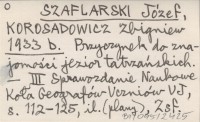 SZAFLARSKI Józef,
KOROSADOWICZ Zbigniew
1933 b. Przyczynek do zna-
jomości jezior tatrzańskich.
- III Sprawozdanie Naukowe
Koła Geografów Uczniów UJ,
s. 112-125, il. (plany), Zsf.